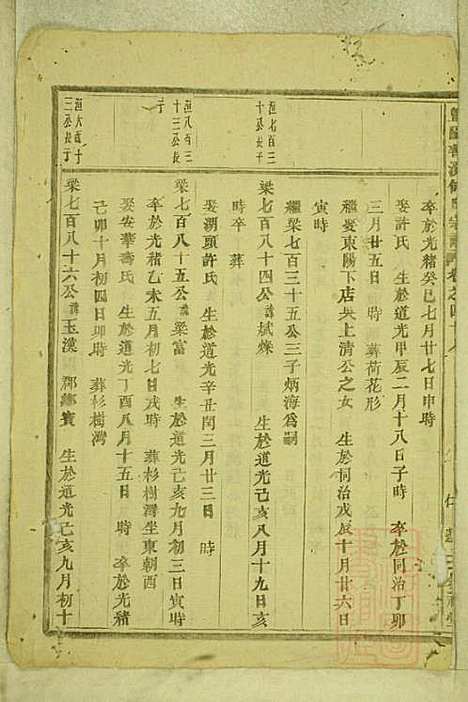 卒於光緒癸巳七月廿七日申時
娶許氏 生於道光甲辰二月十八日子時 卒於同治丁卯
三月廿五日 時 葬荷花形
繼娶東陽下店吳上清公之女 生於同治戊辰十月廿六日
寅時
繼梁七百三十五公三子炳海為嗣
恒七百三
十公長子
梁七百八十四公諱斌燦 生於道光己亥八月十九日亥
時卒 葬
娶湖頭許氏 生於道光辛丑閏三月廿三日 時
恒八百三
十三公長
子
梁七百八十五公諱梁富 生於道光己亥九月初三日寅時
卒於光緒乙未五月初七日戌時 葬杉樹灣坐東朝西
娶安華壽氏 生於道光丁酉八月十五日 時 卒於光緒
己卯十月初四日卯時 葬杉樹灣
恒六百十
三公長子
梁七百八十六公諱玉漢 生於道光己亥九月初十